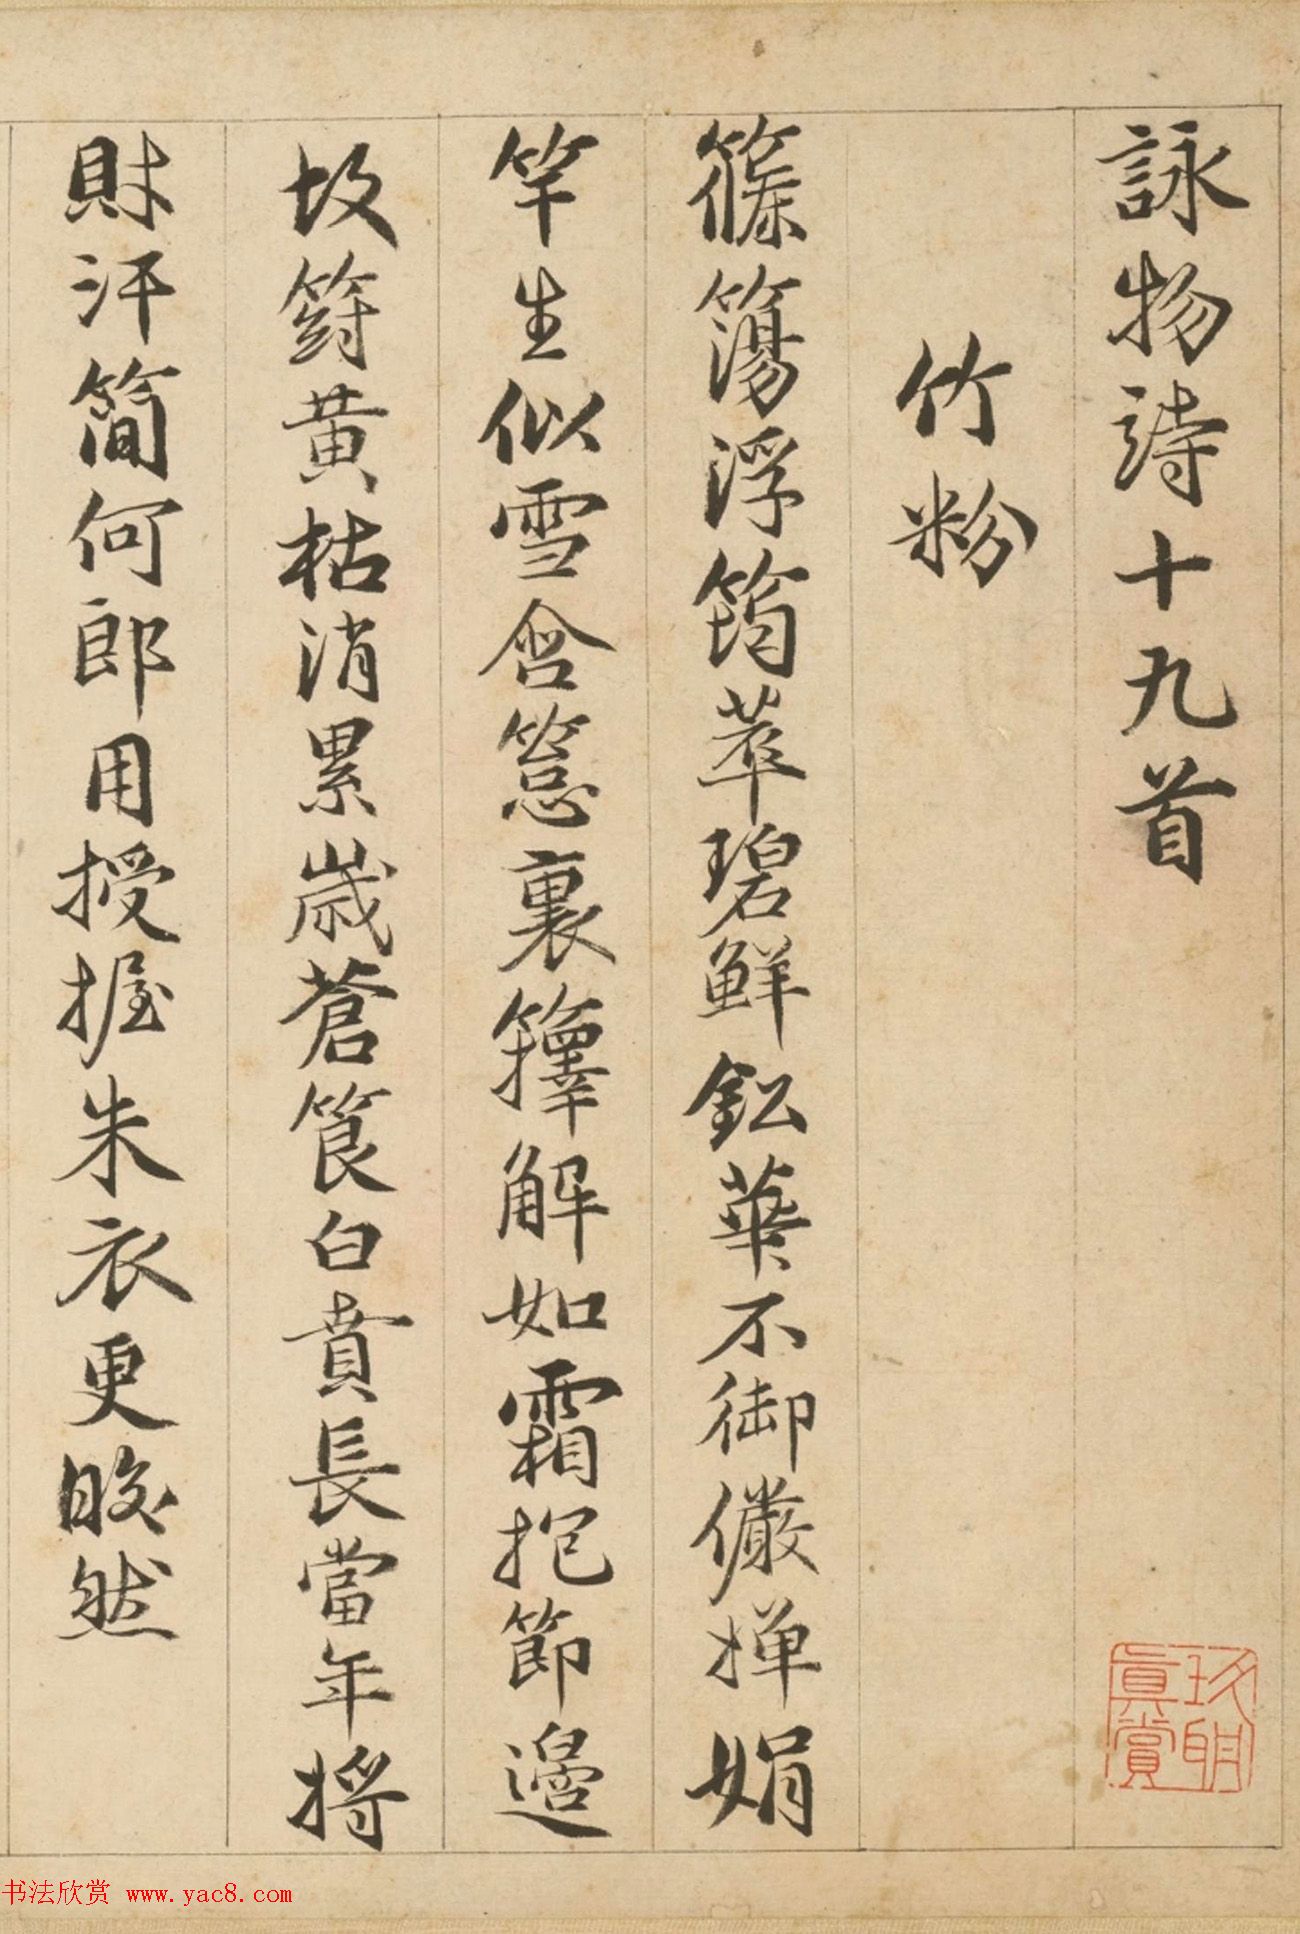 詠物詩十九首
竹粉
篠簜浮筠萃碧鮮鈆華不御儼撣娟
竿生似雪含箁裏籜解如霜抱節邊
坆篈黄枯消累歳蒼筤白賁長當年将
財汗簡何郎用授握朱衣更晈然
玖聃
真賞
书法欣赏 www.yac8.com